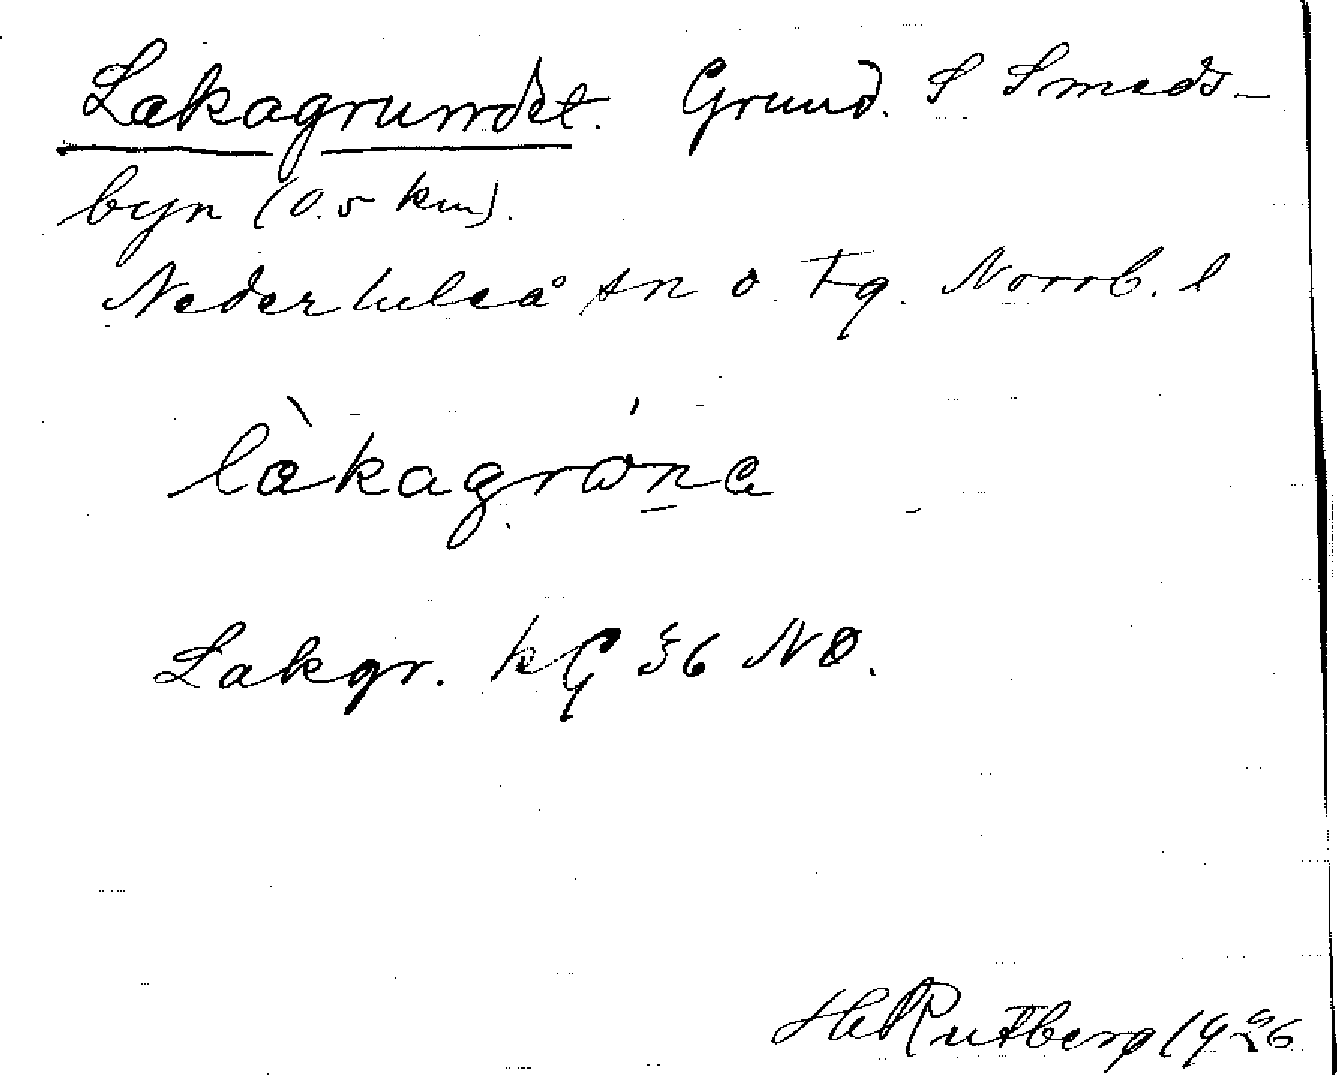 Lakagrundet. Grund. S Smeds-
byn (0.5 km).
Nederluleå sn o. Tg. Norrb. l
làkagrǿna
Lakgr. kG 36 NO.
Hd Rutberg 1926